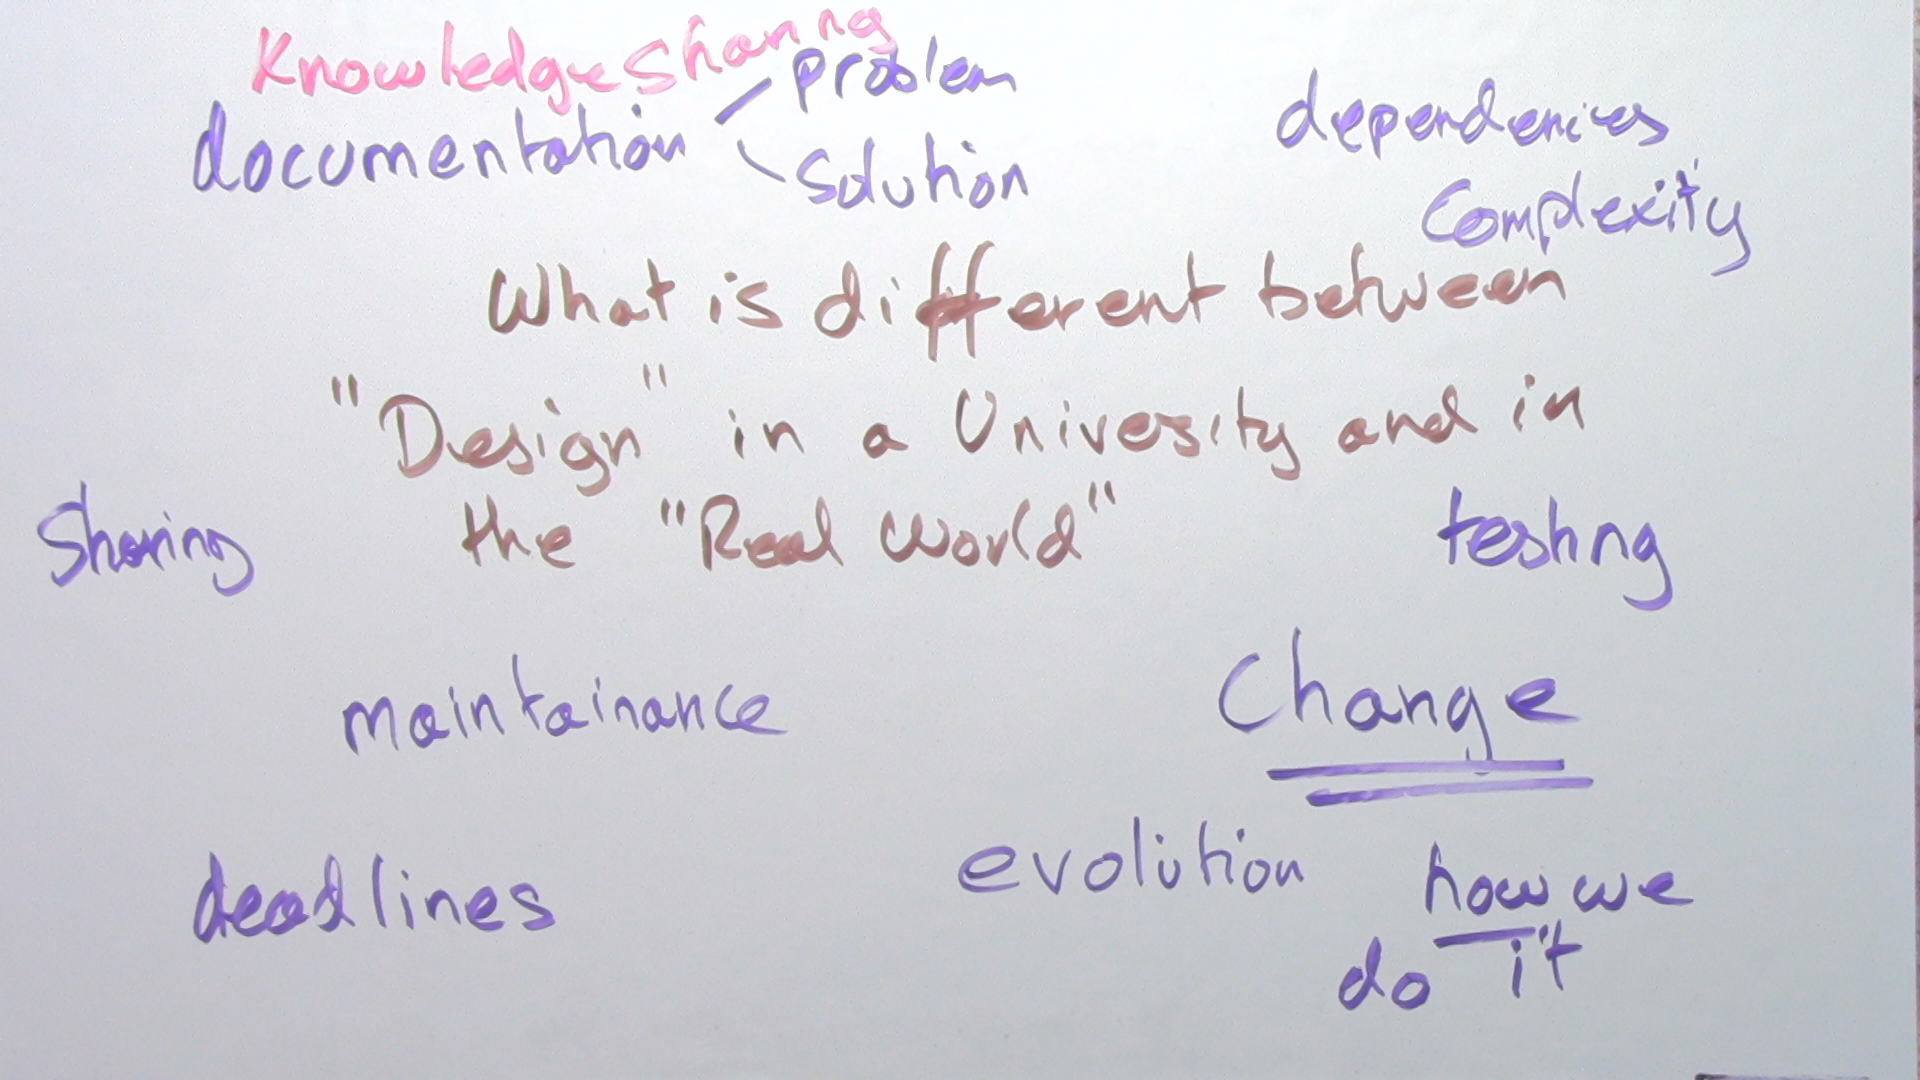 Knowledge Sharing
documentation
problem
Solution
dependencies
Complexity
What is different between
"Design" in a Univesity and in
the "Real World"
Sharing
testing
maintainance
Change
deadlines
evolution
how we
do it